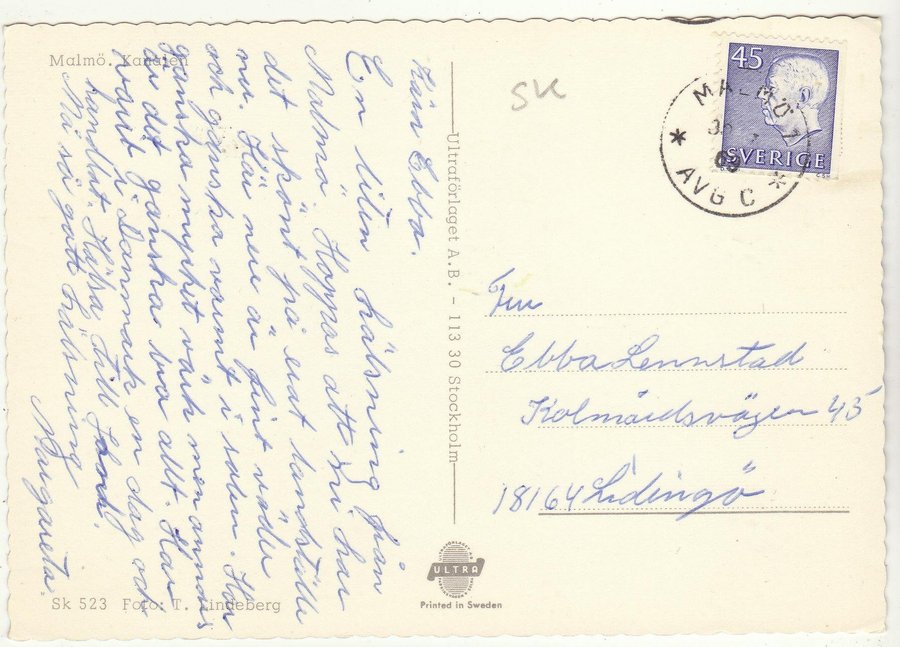 Malmö. Kanalen
Kära Ebba.
En liten hälsning från
Malmö. Hoppas att ni har
det skönt på ert landställe
nu. Här nere är fint väder
och ganska varmt i solen. Har
ganska mycket värk men annars
är det ganska bra allt. Har
varit i Danmark en dag och
handlat. Hälsa till
Må så gott hälsning
Margareta.
Sk 523 Foto: T. Lindeberg
Ultraförlaget A.B. - 113 30 Stockholm
ULTRA
Printed in Sweden
SK
45
SVERIGE
MALMÖ 1
69
AVG C
Fru
Ebba Lennstad
Kolmårdsvägen 45
18164 Lidingö